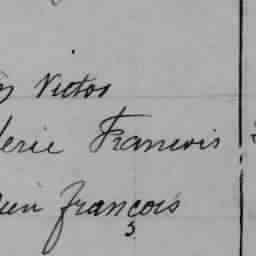 Victor
erie Francois
francois
3